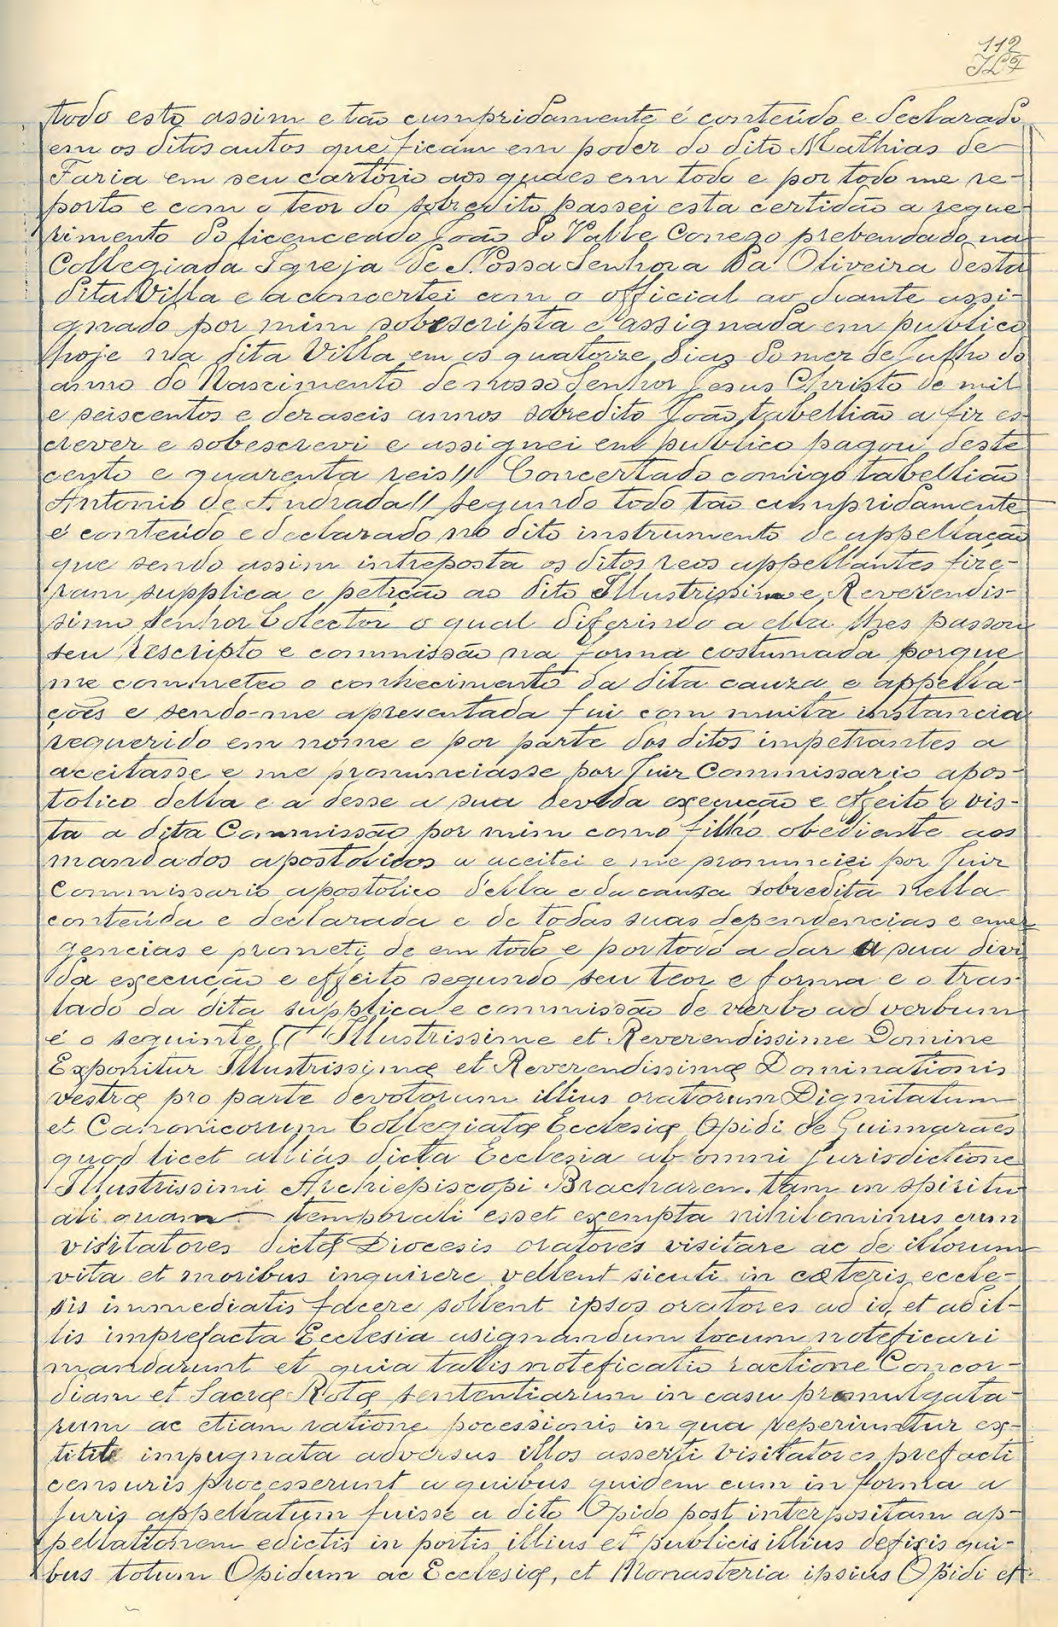 112
todo esto assim e tão cumpridamente é conteúdo e declarado
em os ditos autos que ficam em poder do dito Mathias de
Faria em seu cartorio aos quaes em todo e por todo me re-
porto e com o teor do sobredito passei esta certidão a reque-
rimento do licenceado João do Valle Conego prebendado na
Collegiada Igreja de Nossa Senhora da Oliveira desta
dita Villa e a concertei com o official ao diante assi-
gnado por mim sobescripta e assignada em publico
hoje na dita Villa em os quatorze dias do mez de Julho do
anno do Nascimento de nosso Senhor Jesus Christo de mil
e seiscentos e dezaseis annos sobredito João tabellião a fiz es-
crever e sobescrevi e assignei em publico pagou deste
cento e quarenta reis// Concertado comigo tabellião
Antonio de Andrada// segundo todo tão cumpridamente
é conteúdo e declarado no dito instrumento de appellação
que sendo assim intreposta os ditos reos appellantes fize-
ram supplica e petição ao dito Illustrissimo e Reverendis-
simo Senhor Colector o qual diferindo a ella lhes passou
seu rescripto e commissão na forma costumada porque
me commeteo o conhecimento da dita cauza e appella-
ções e sendo-me apresentada fui com muita instancia
requerido em nome e por parte dos ditos impetrantes a
aceitasse e me pronunciasse por Juiz Commissario apos-
tolico della e a desse a sua devida execução e effeito e vis-
ta a dita Commissão por mim como filho obediente aos
mandados apostolicos a aceitei e me pronunciei por Juiz
Commissario apostolico della e da causa sobredita nella
conteúda e declarada e de todas suas dependencias e emer-
gencias e prometi de em todo e por todo a dar a sua divi
da execução e effeito segundo seu teor e forma e o tras-
lado da dita supplica e commissão de verbo ad verbum
é o seguinte Illustrissime et Reverendissime Domine
Exponitur Illustrissimæ et Reverendissimæ Dominationis
vestræ pro parte devotorum illius oratorum Dignitatum
et Canonicorum Collegiatæ Ecclesiæ Opidi de Guimarães
quod licet alliás dicta Ecclesia ab omni Jurisdictione
Illustrissimi Archiepiscopi Bracharen. tam in spiritu-
ali quam temporali esset exempta nihilominus cum
visitatores dictæ Diocesis oratores visitare ac de illorum
vita et moribus inquirere vellent sicuti in cæteris eccle-
sis immediatis facere sollent ipsos oratores ad id et ad il-
lis imprefacta Ecclesia asignandum locum noteficari
mandarunt et quia talis noteficatio ractione Concor-
diam et Sacræ Rotæ sententiarum in casu promulgata-
rum ac etiam ratione pocessionis in qua reperiuntur ex-
titit impugnata adversus illos asserti visitatores prefacti
censuris processerunt a quibus quidem cum in forma a
Juris appellatum fuisse a dito Opido post interpositam ap-
pellationem edictis in portis illius et publicis illius defixis qui-
bus totum Opidum ac Ecclesiæ, et Monasteria ipsius Opidi et